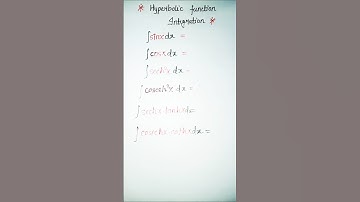 * Hyperbolic function
Integration *
∫sinx dx =
∫cosx dx =
∫sech²x dx =
∫cosech²x dx =
∫sechx·tanhx dx =
∫cosechx·cothx dx =